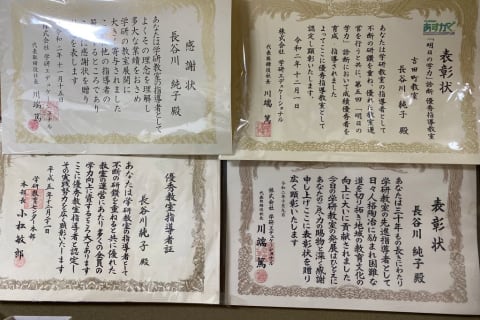 感謝状
長谷川 純子 殿
あなたは学研教室の指導者として
よくその理念を理解し
多大な業績をおさめ
学研の教室展開に
大きく寄与されました
ここに感謝状を贈り
株式会社 学研エデュケーショナル
代表取締役社長 川端 篤
表彰状
「明日の学力」診断 優秀指導教室
吉田町教室
長谷川 純子 殿
あなたは学研教室の指導者として
不断の研鑽を重ね 優れた教室運
営を行うと共に、第五四一明日の
学力」診断において成績優秀者を
育成、指導されました
よってここに優秀指導教室として
認定し顕彰いたします。
令和二年十二月一日
株式会社 学研エデュケーショナル
代表取締役社長 川端 篤
優秀教室指導者証
長谷川純子 殿
あなたは学研教室の指導者として
不断の研鑽を重ねると共に優れた
教室の運営にあたり多くの会員の
学力向上に資するところ大であります
ここに優秀教室指導者と認定し
その実践努力を広く顕彰いたします
平成五年十二月一日
学研教育センター本部
本部長 小松敏郎
表彰状
長谷川 純子 殿
あなたは三十年もの長きにわたり
学研教室の先進指導者として
日々人格陶冶に励まれ困難な
道を切り拓き地域の教育文化の
向上に大いに貢献されました
今日の学研教室の発展はひとえに
あなたのご尽力の賜物と深く感謝
申し上げここに表彰状を贈り
広く顕彰いたします
株式会社 学研エデュケーショナル
代表取締役社長 川端 篤